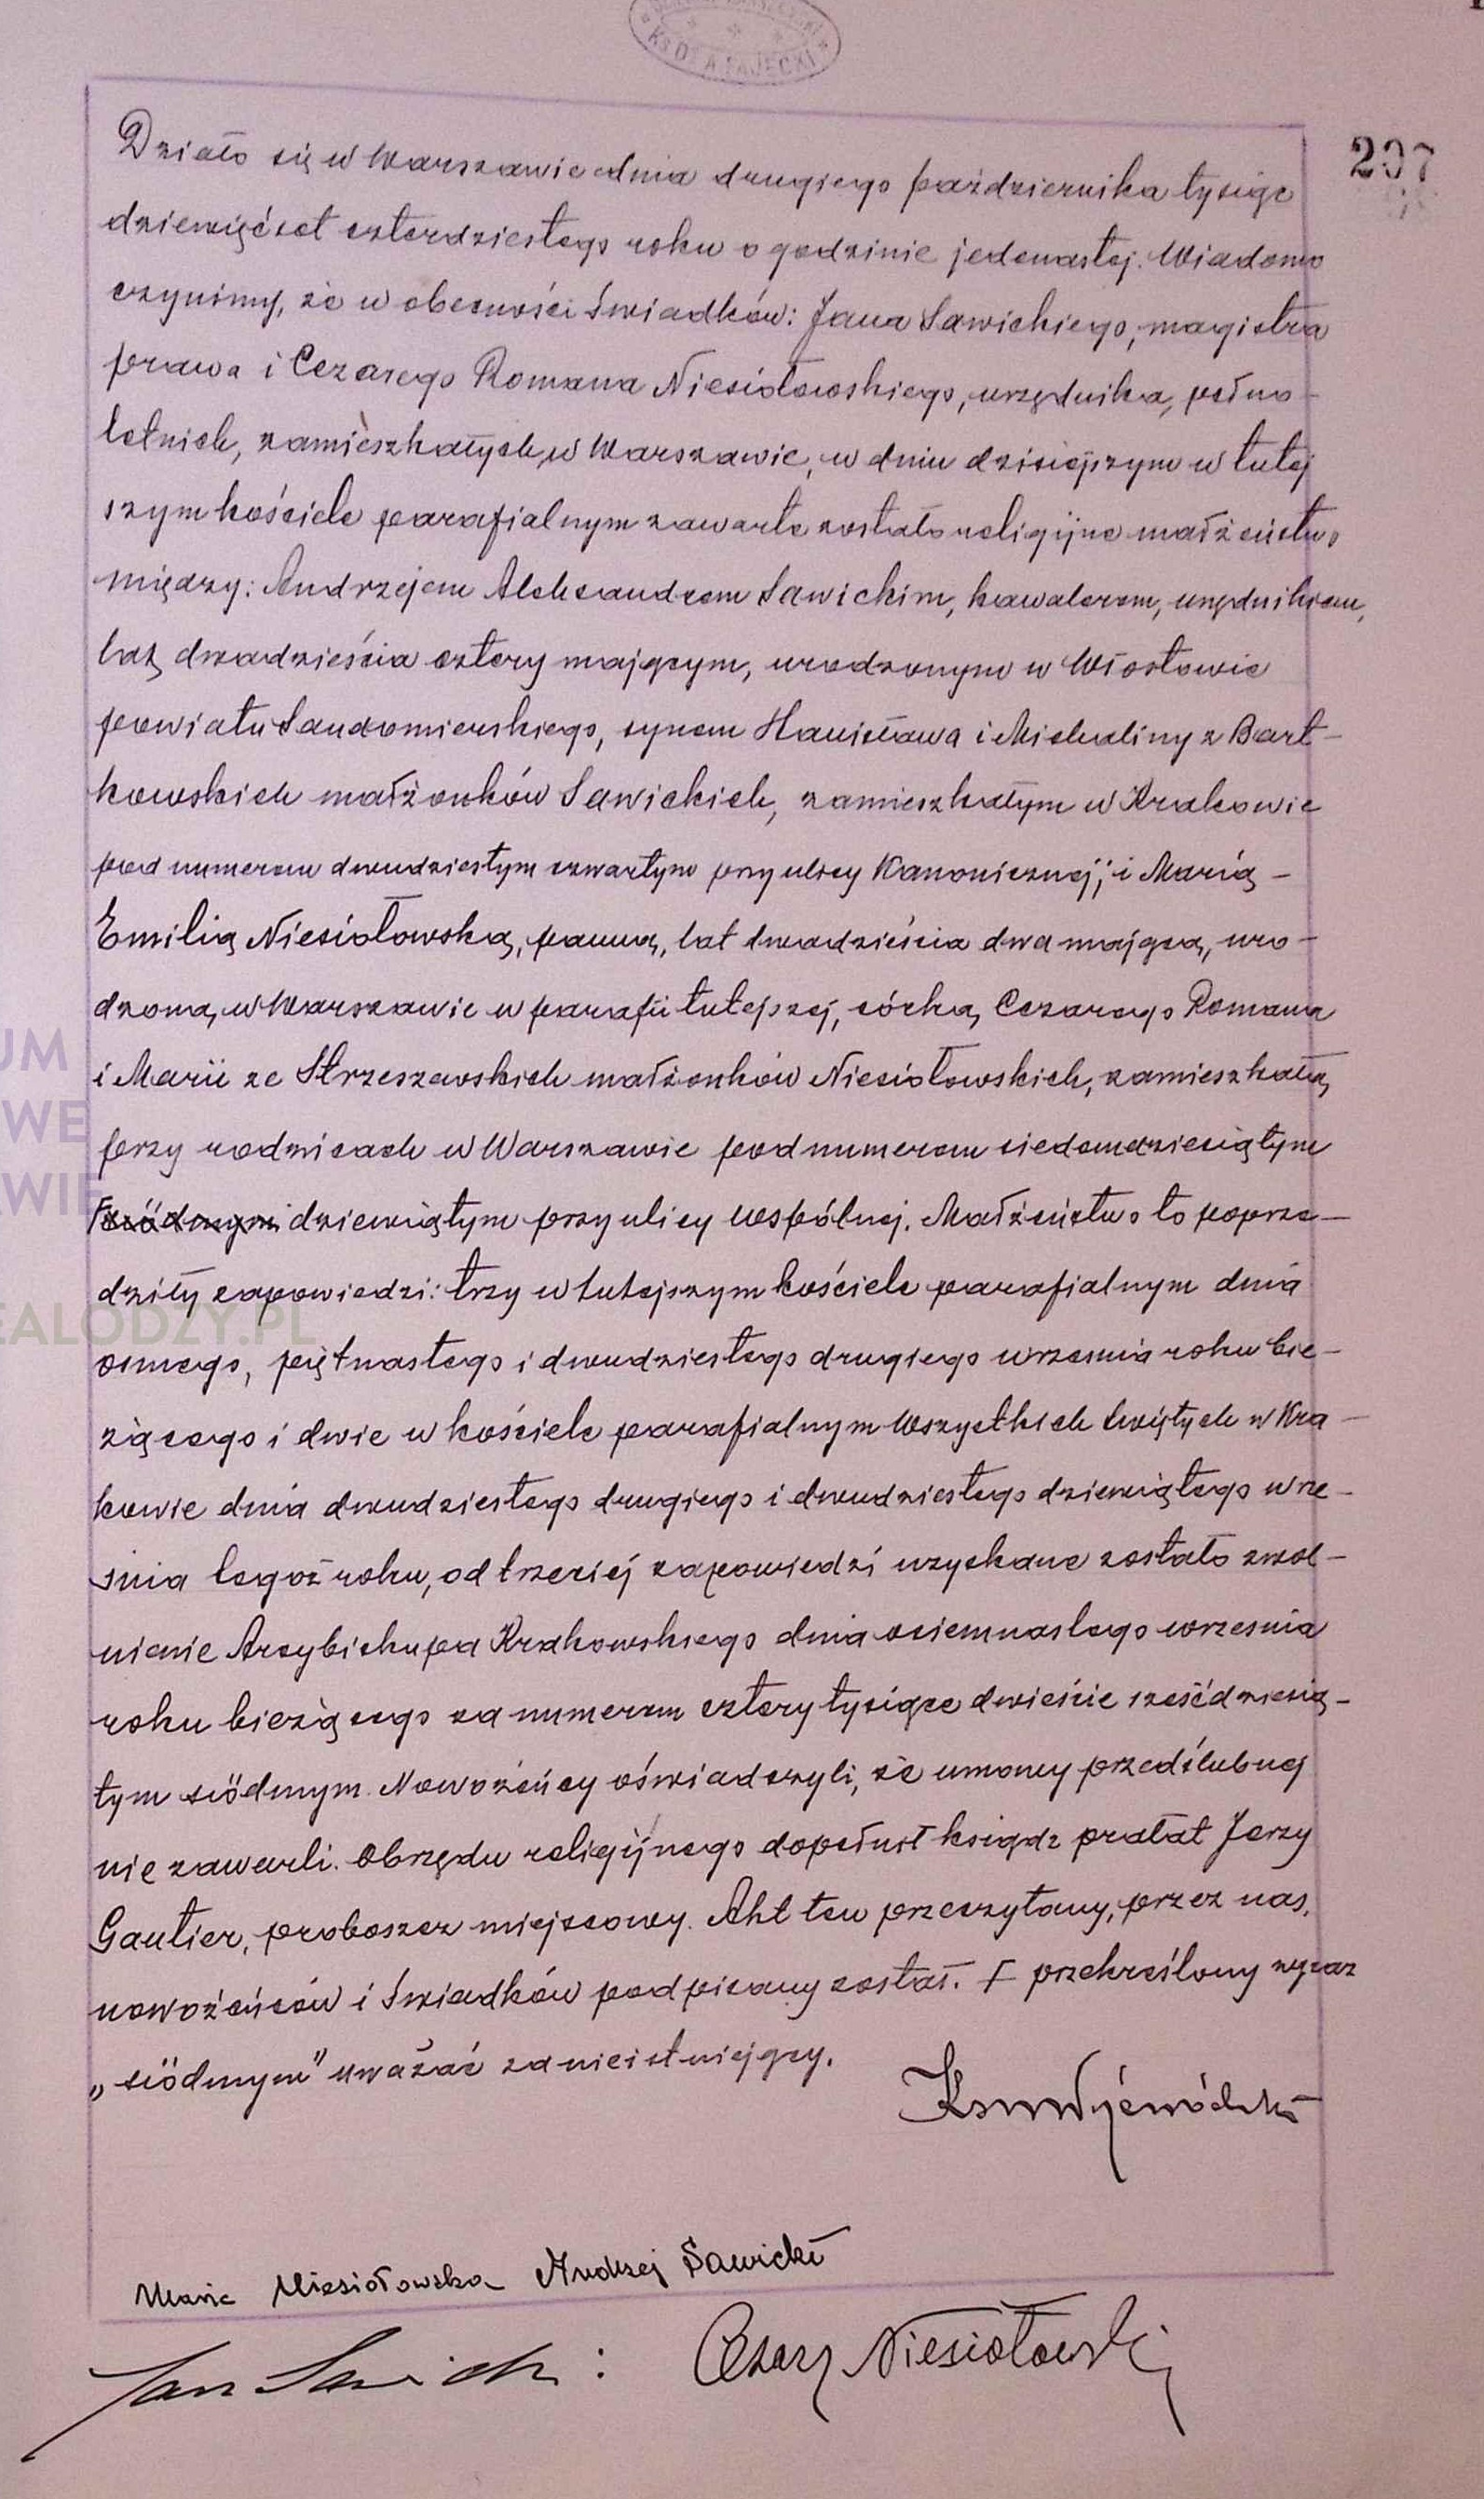 KS. DR A. FAJĘCKI
207
Działo się w Warszawie dnia drugiego października tysiąc
dziewięćset czterdziestego roku o godzinie jedenastej. Wiadomo
czynimy, że w obecności świadków: Jana Sawickiego, magistra
prawa i Cezarego Romana Niesiołowskiego, urzędnika, pełno-
letnich, zamieszkałych w Warszawie, w dniu dzisiejszym w tutej
szym kościele parafialnym zawarte zostało religijne małżeństwo
między: Andrzejem Aleksandrem Sawickim, kawalerem, urzędnikiem,
lat dwadzieścia cztery mającym, urodzonym w Włostowie
powiatu Sandomierskiego, synem Stanisława i Michaliny z Bart-
kowskich małżonków Sawickich, zamieszkałym w Krakowie
pod numerem dwudziestym czwartym przy ulicy Kanonicznej; i Marią-
Emilią Niesiołowską, panną, lat dwadzieścia dwa mającą, uro-
dzoną w Warszawie w parafii tutejszej, córką Cezarego Romana
i Marii ze Strzeszewskich małżonków Niesiołowskich, zamieszkałą
przy rodzicach w Warszawie pod numerem siedemdziesiątym
siódmym dziewiątym przy ulicy Wspólnej. Małżeństwo to poprze-
dziły zapowiedzi: trzy w tutejszym kościele parafialnym dnia
ósmego, piętnastego i dwudziestego drugiego września roku bie-
żącego i dwie w kościele parafialnym Wszystkich Świętych w Kra-
kowie dnia dwudziestego drugiego i dwudziestego dziewiątego wrze-
śnia tegoż roku, od trzeciej zapowiedzi uzyskane zostało zwol-
nienie Arcybiskupa Krakowskiego dnia osiemnastego września
roku bieżącego za numerem cztery tysiące dwieście sześćdziesią-
tym siódmym. Nowożeńcy oświadczyli, że umowy przedślubnej
nie zawarli. Obrzędu religijnego dopełnił ksiądz prałat Jerzy
Gautier, proboszcz miejscowy. Akt ten przeczytany, przez nas,
nowożeńców i świadków podpisany został. Ͱ przekreślony wyraz
„siódmym" uważać za nieistniejący.
Maria Niesiołowska Andrzej Sawicki
Jan Sawicki Cezary Niesiołowski
UM
WE
WIE
EALODZY.PL